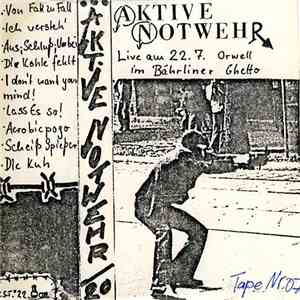 ·Von Fak zu Fall
·Ich versteh'
·Aus, Schluß, Vorbei
·DIe Kohle fehlt
·I don't want your
mind!
·Lass Es so!
·Aerobicpogo
·Scheiß Spießer
·DIe Kuh
AKTIVE NOTWEHR /20
AKTIVE
NOTWEHR
Live am 22.7. Orwell
im Bährliner Ghetto
Tape Nr. 07